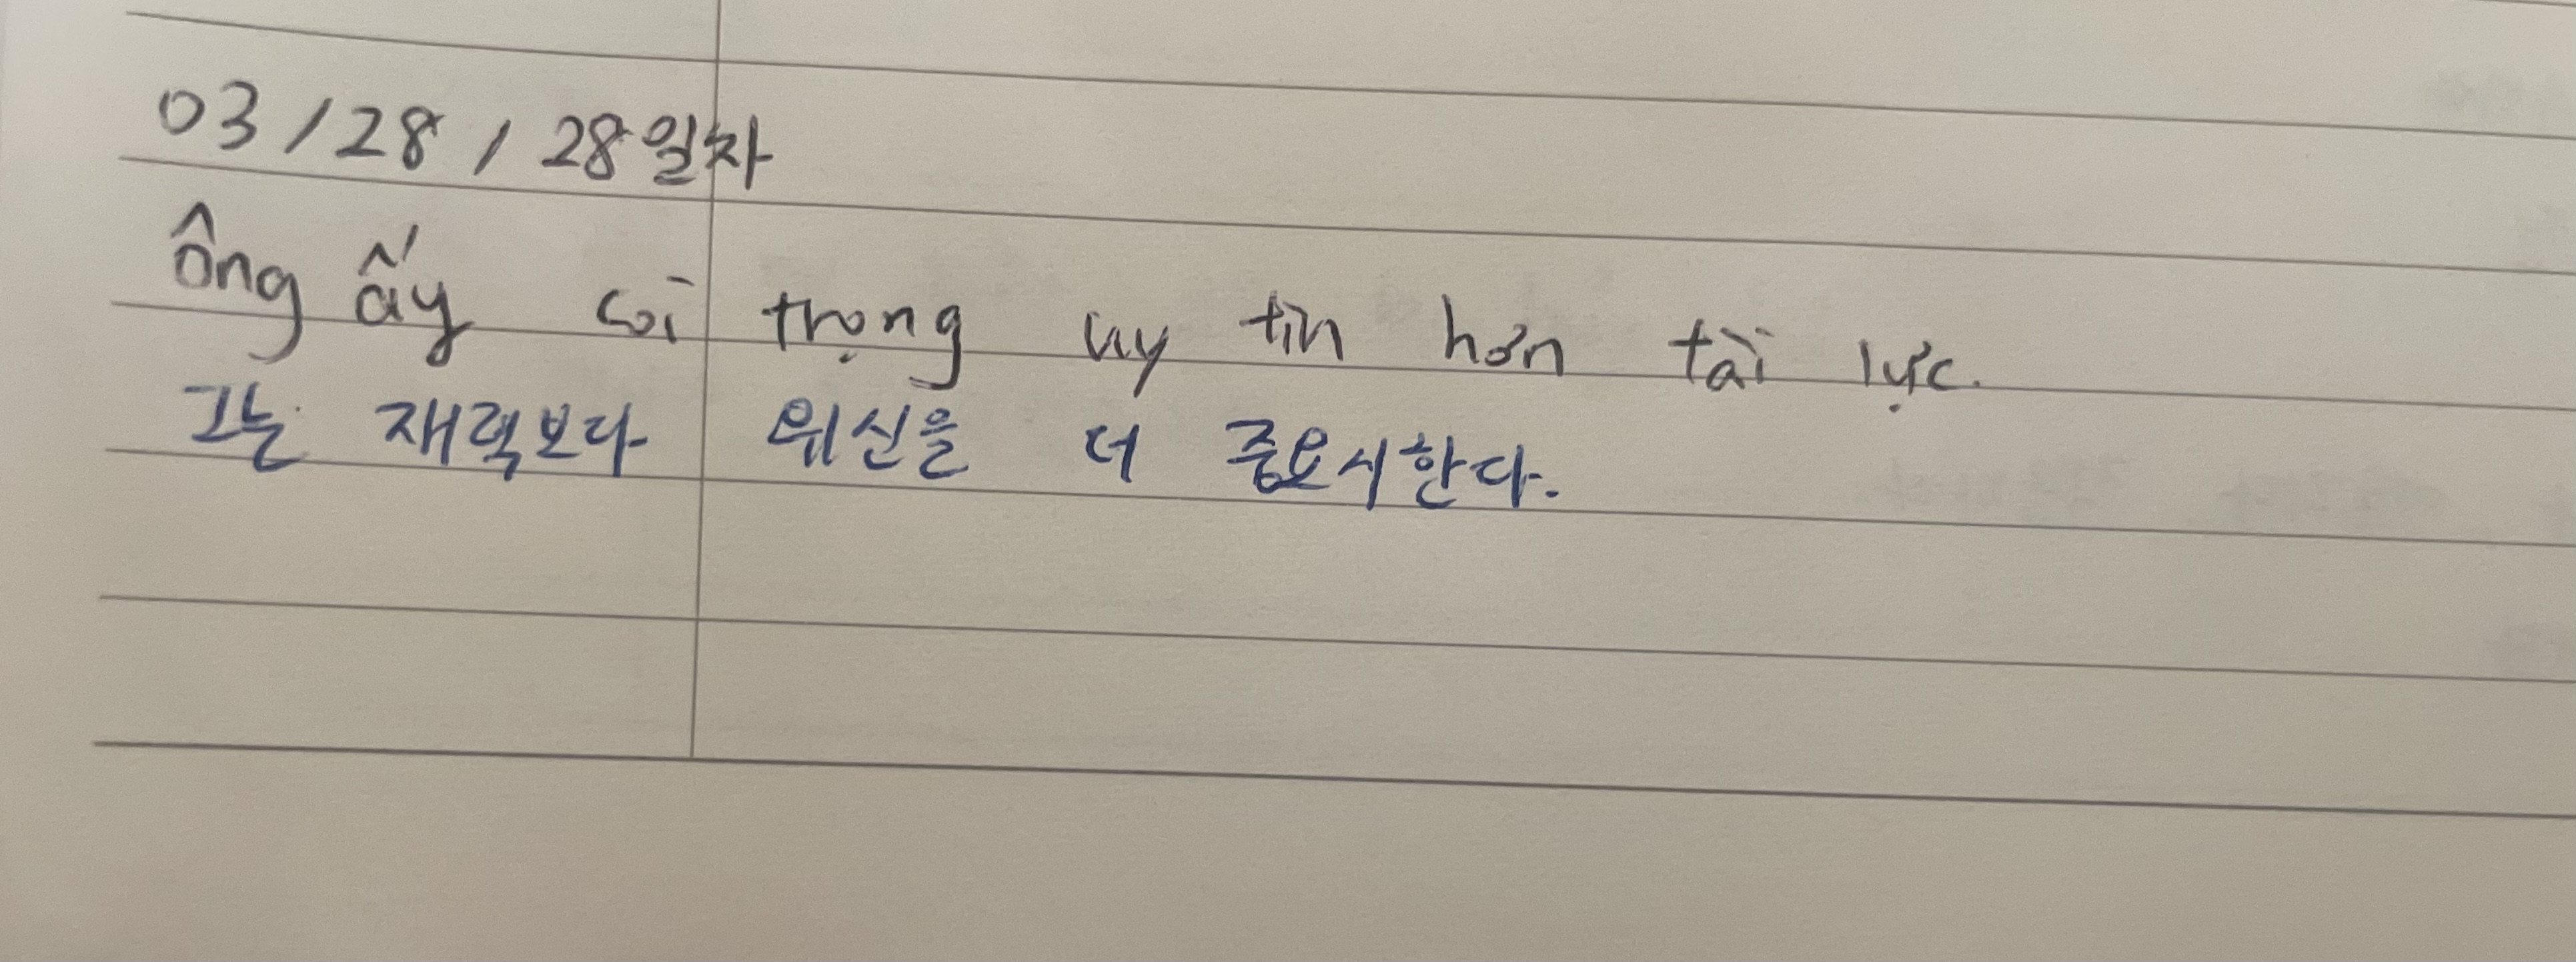 03 / 28 / 28일차
ông ấy coi trọng uy tín hơn tài lực.
그는 재력보다 위신을 더 중요시한다.